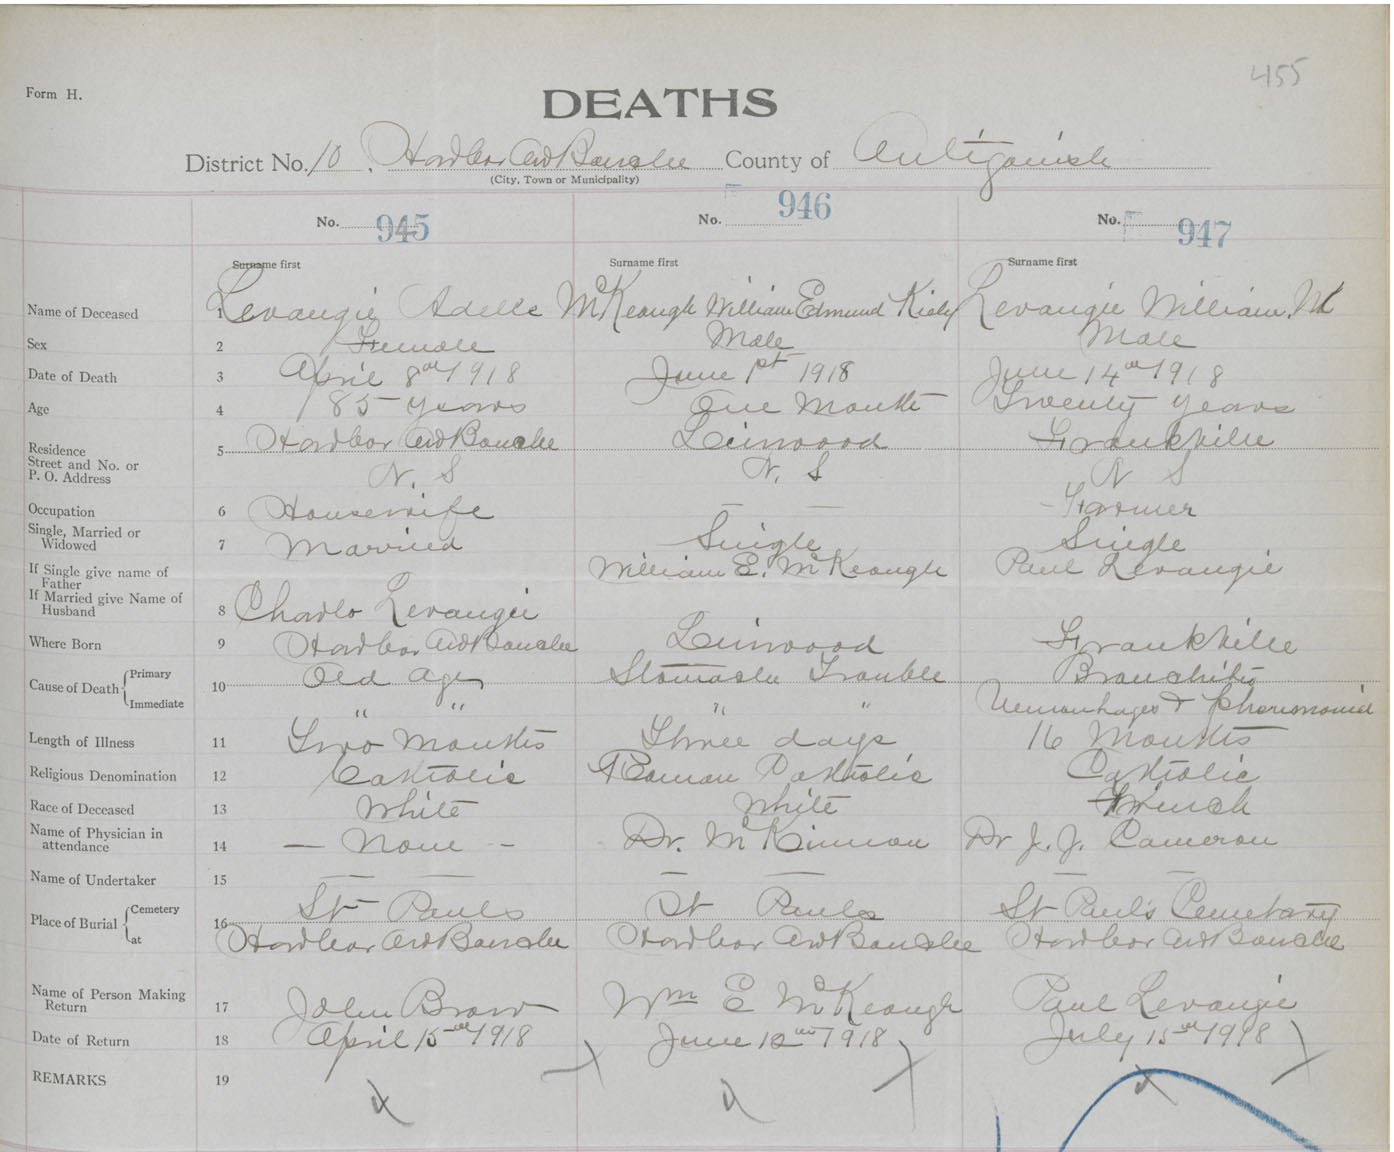 455
Form H.
DEATHS
District No. 10. Harbor Au Bouche County of Antigonish
(City, Town or Municipality)
No. 945 No. 946 No. 947
Surname first Surname first Surname first
Name of Deceased 1 Levangie Adelle McKeough William Edmund Levangie William
Sex 2 Female Male Male
Date of Death 3 April 8th 1918 June 1st 1918 June 14th 1918
Age 4 85 years One Month Twenty years
Residence 5 Harbor Au Bouche Linwood Frankville
Street and No. or
P. O. Address N. S N. S N S
Occupation 6 Housewife — — - Farmer
Single, Married or
Widowed 7 Married Single Single
If Single give name of
Father William E. McKeough Paul Levangie
If Married give Name of
Husband 8 Charlo Levangie
Where Born 9 Harbor Au Bouche Linwood Frankville
Cause of Death { Primary 10 Old Age Stomach Trouble Bronchitis
Immediate " " " " &
Length of Illness 11 Two Months Three days 16 Months
Religious Denomination 12 Catholic Roman Catholic Catholic
Race of Deceased 13 White White French
Name of Physician in
attendance 14 — None - Dr. McKinnon Dr J. J. Cameron
Name of Undertaker 15 — — — — — —
Place of Burial { Cemetery 16 St Pauls St Pauls St Paul's Cemetary
at Harbor Au Bouche Harbor Au Bouche Harbor Au Bouche
Name of Person Making
Return 17 John Brow Wm E McKeough Paul Levangie
Date of Return 18 April 15th 1918 June 12th 1918 July 15th 1918
REMARKS 19